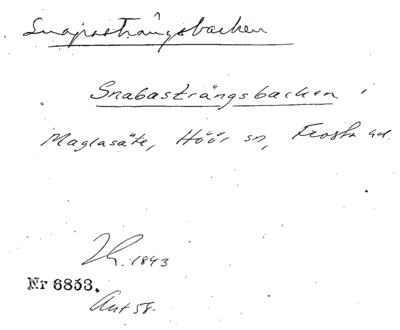 Snaprsträngsbacken
Snabasträngsbacken i
Maglasäte, Höör sn, Frosta hd.
Th. 1843
Nr 6853.
Ant 58.